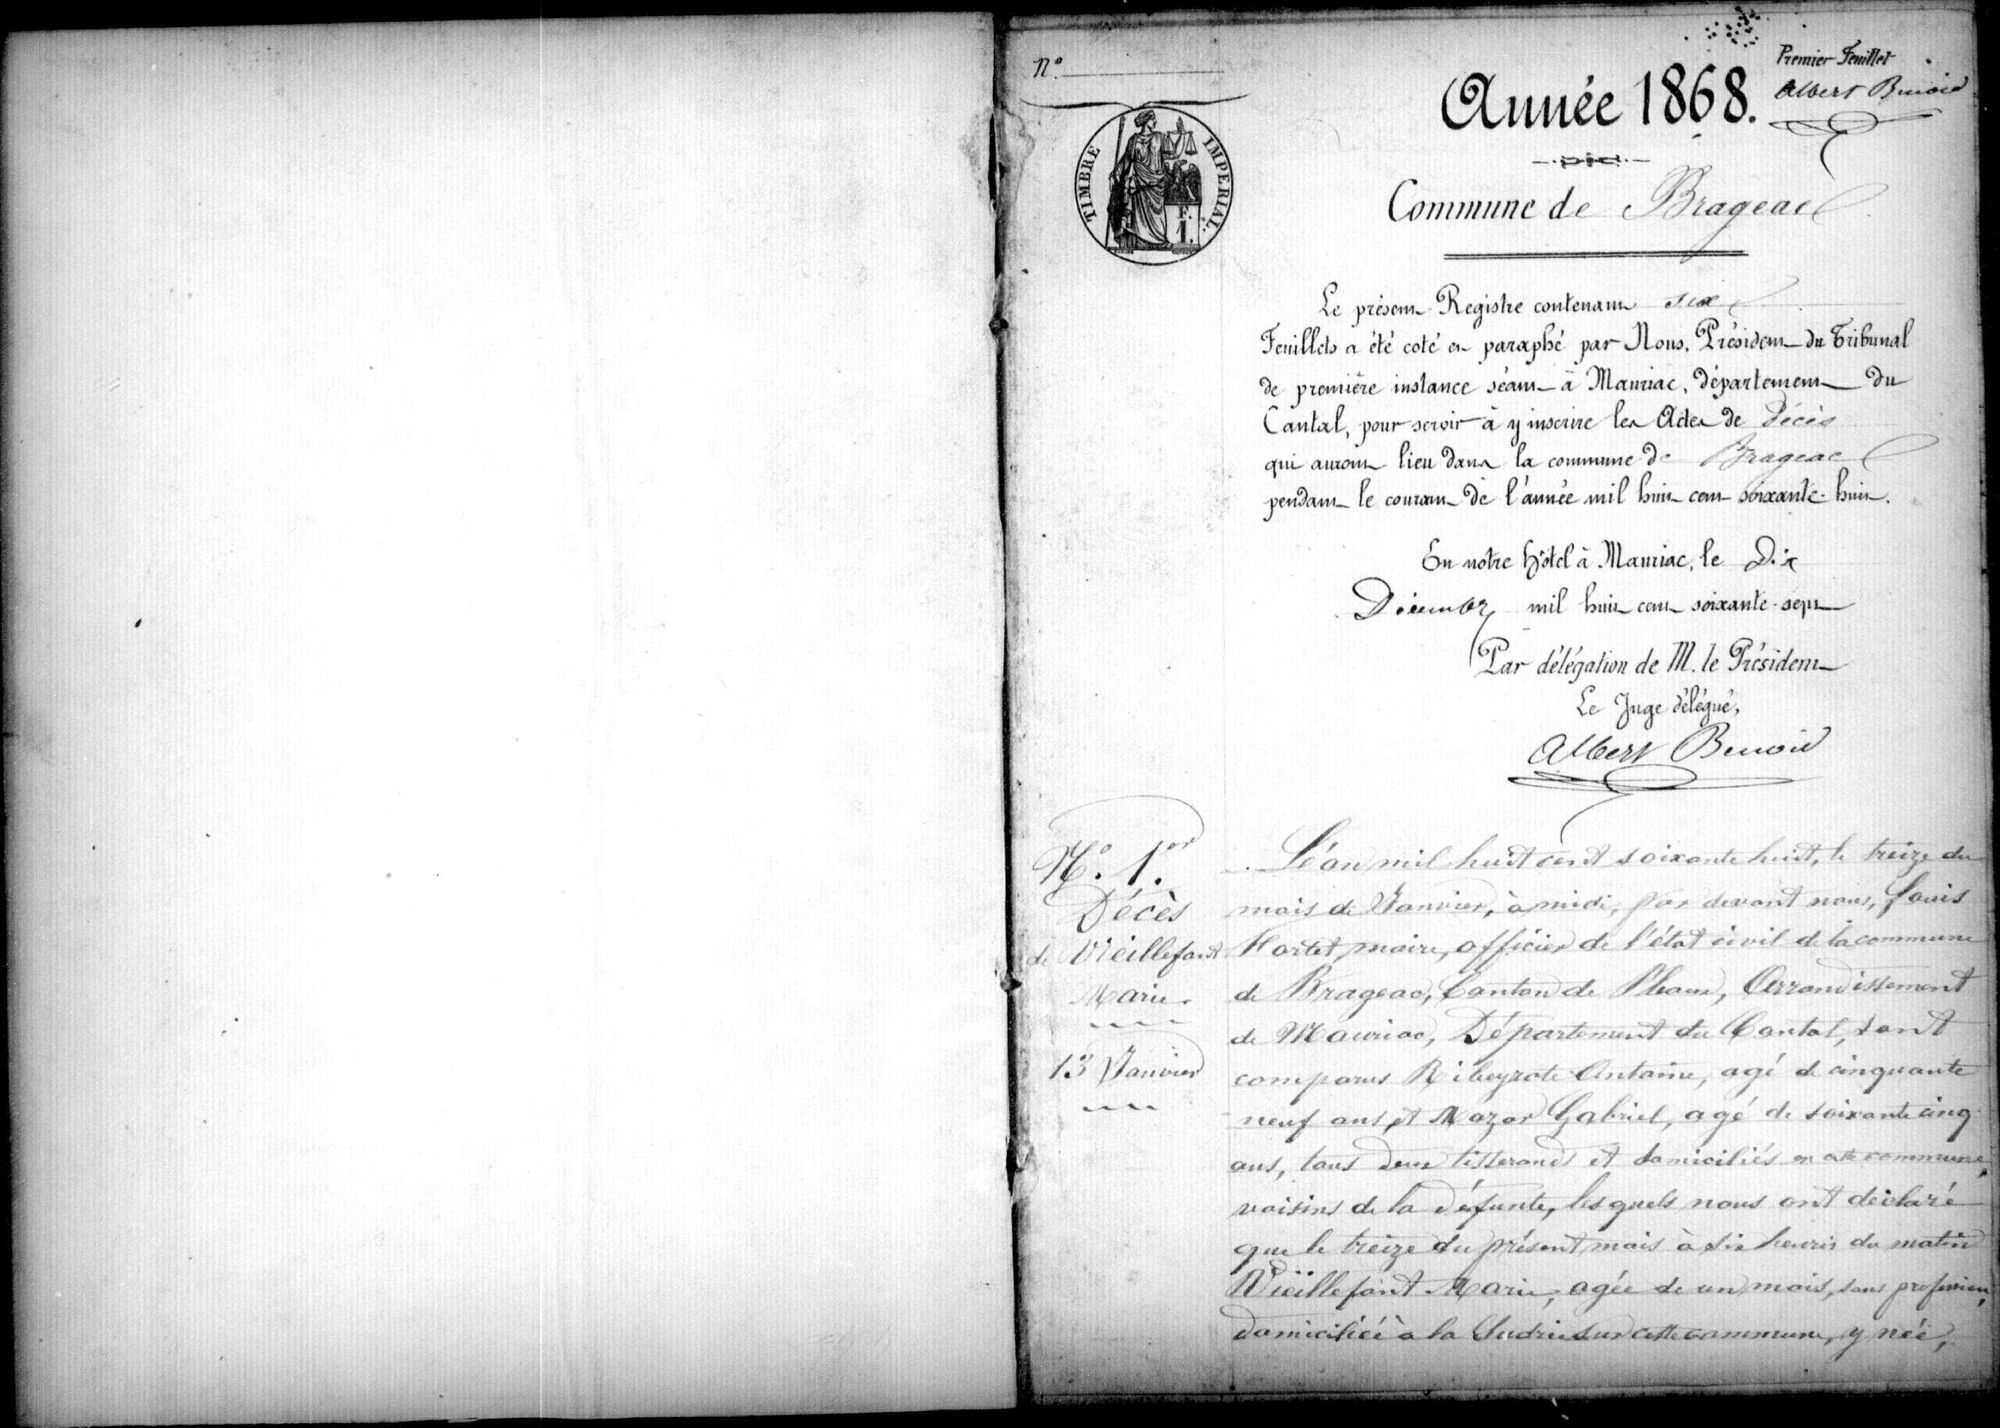 N.º
Premier Feuillet
Albert Benoid
Année 1868.
TIMBRE IMPERIAL.
F.
1.
Commune de Brageac
Le présent Registre contenant six
Feuillets a été coté et paraphé par Nous, Président du Tribunal
de première instance séant à Mauriac, département du
Cantal, pour servir à y inscrire les Actes de décès
qui auront lieu dans la commune de Brageac
pendant le courant de l'année mil huit cent soixante-huit.
En notre hôtel à Mauriac, le Dix
Décembre mil huit cent soixante-sept
Par délégation de M. le Président
Le Juge délégué,
Albert Benoid
N.º 1.er
Décès
de Vieillefont
Marie.
13 Janvier
L'an mil huit cent soixante huit, le treize du
mois de Janvier, à midi, par devant nous, Louis
maire, officier de l'état civil de la commune
de Brageac, Canton de Pleaux, Arrondissement
de Mauriac, Département du Cantal, sont
comparus Ribeyrote Antoine, agé de cinquante
neuf ans, et Mazar Gabriel, agé de soixante cinq
ans, tous deux tisserands et domiciliés en cette commune,
voisins de la défunte, lesquels nous ont déclaré
que le treize du présent mois à six heures du matin
Vieillefont Marie, agée de un mois, sans profession,
domiciliée à la Sudrie sur cette commune, y née,